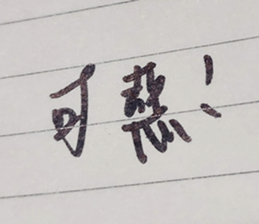 可惡!